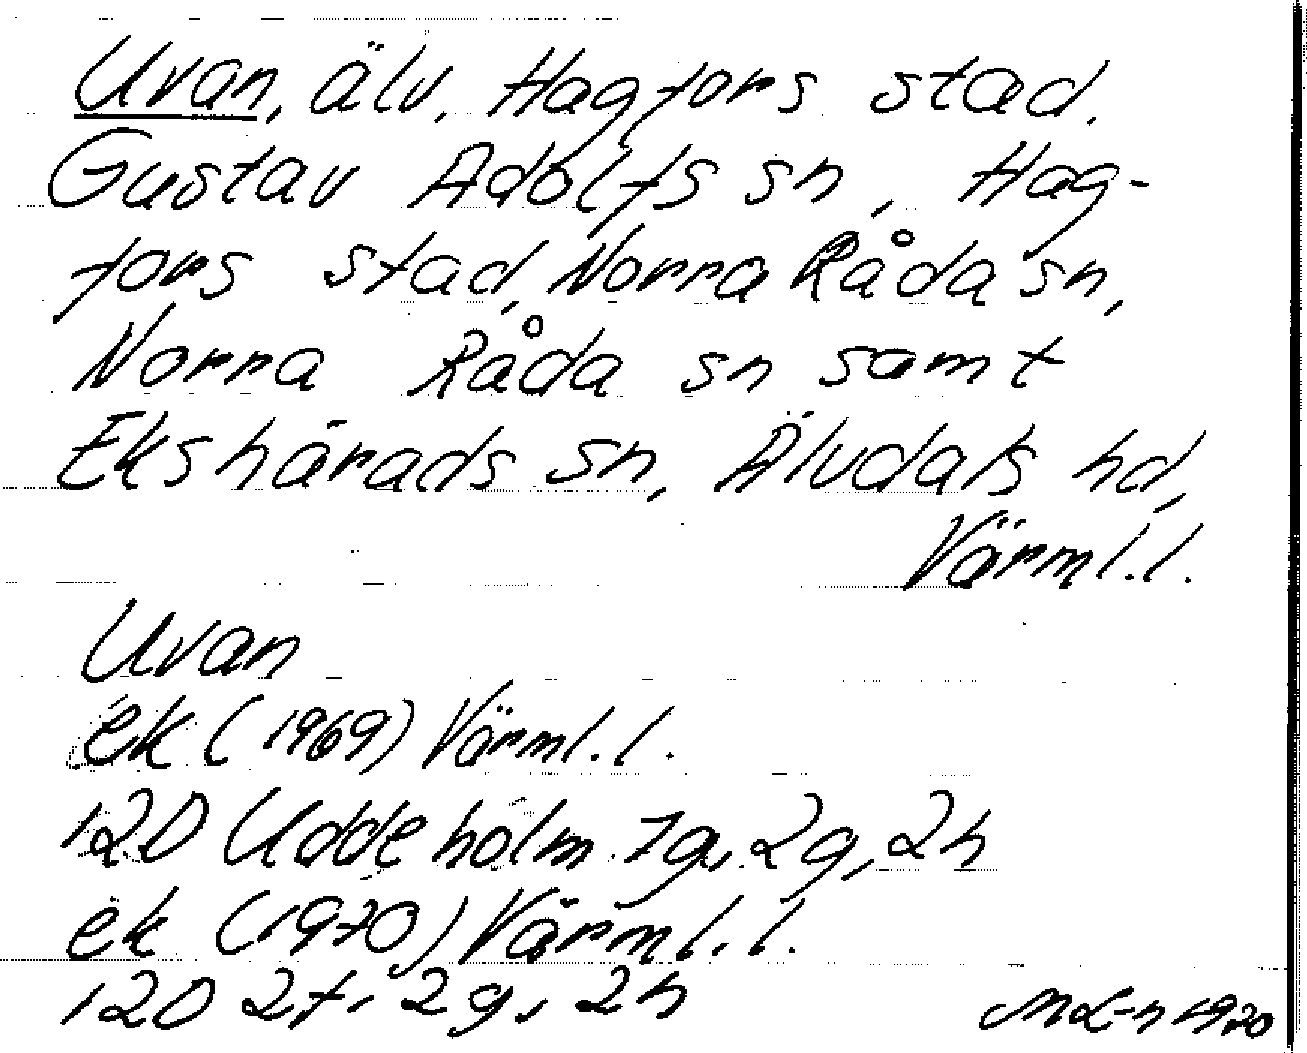 Uvan, älv, Hagfors stad,
Gustav Adolfs sn, Hag-
fors stad, Norra Råda sn,
Norra Råda sn samt
Ekshärads sn, Älvdals hd,
Värml. l.
Uvan
ek (1969) Värml. l.
12D Uddeholm 1g, 2g, 2h
ek (1970) Värml. l.
12D 2f, 2g, 2h